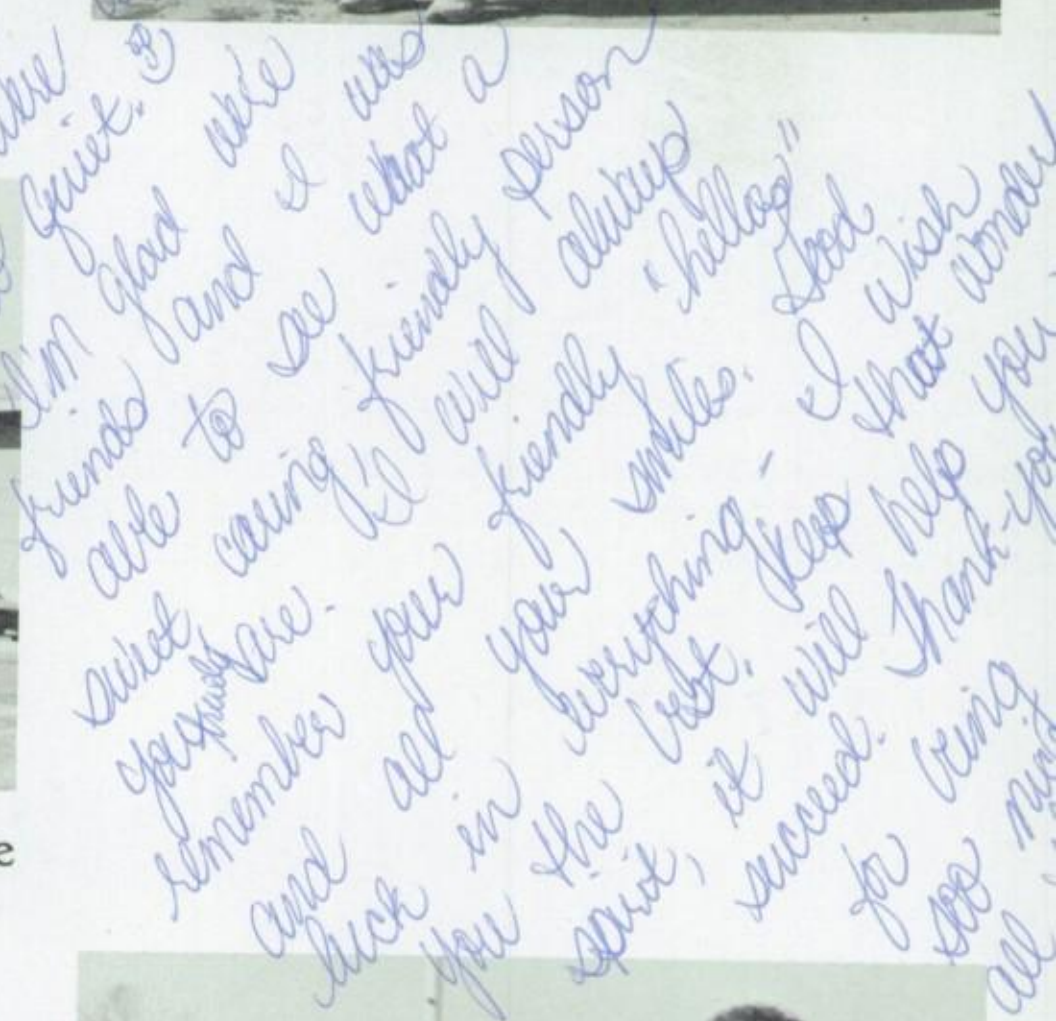 were
quiet.
I'm glad we're
friends and I was
able to see what a
sweet caring friendly person
you truly are. I'll will always
remember all your friendly "hellos"
and all your smiles. Good
luck in everything - I wish
you the best. Keep that wonder
spirit, it will help you
succeed. Thank-you
for being
soo
all
e